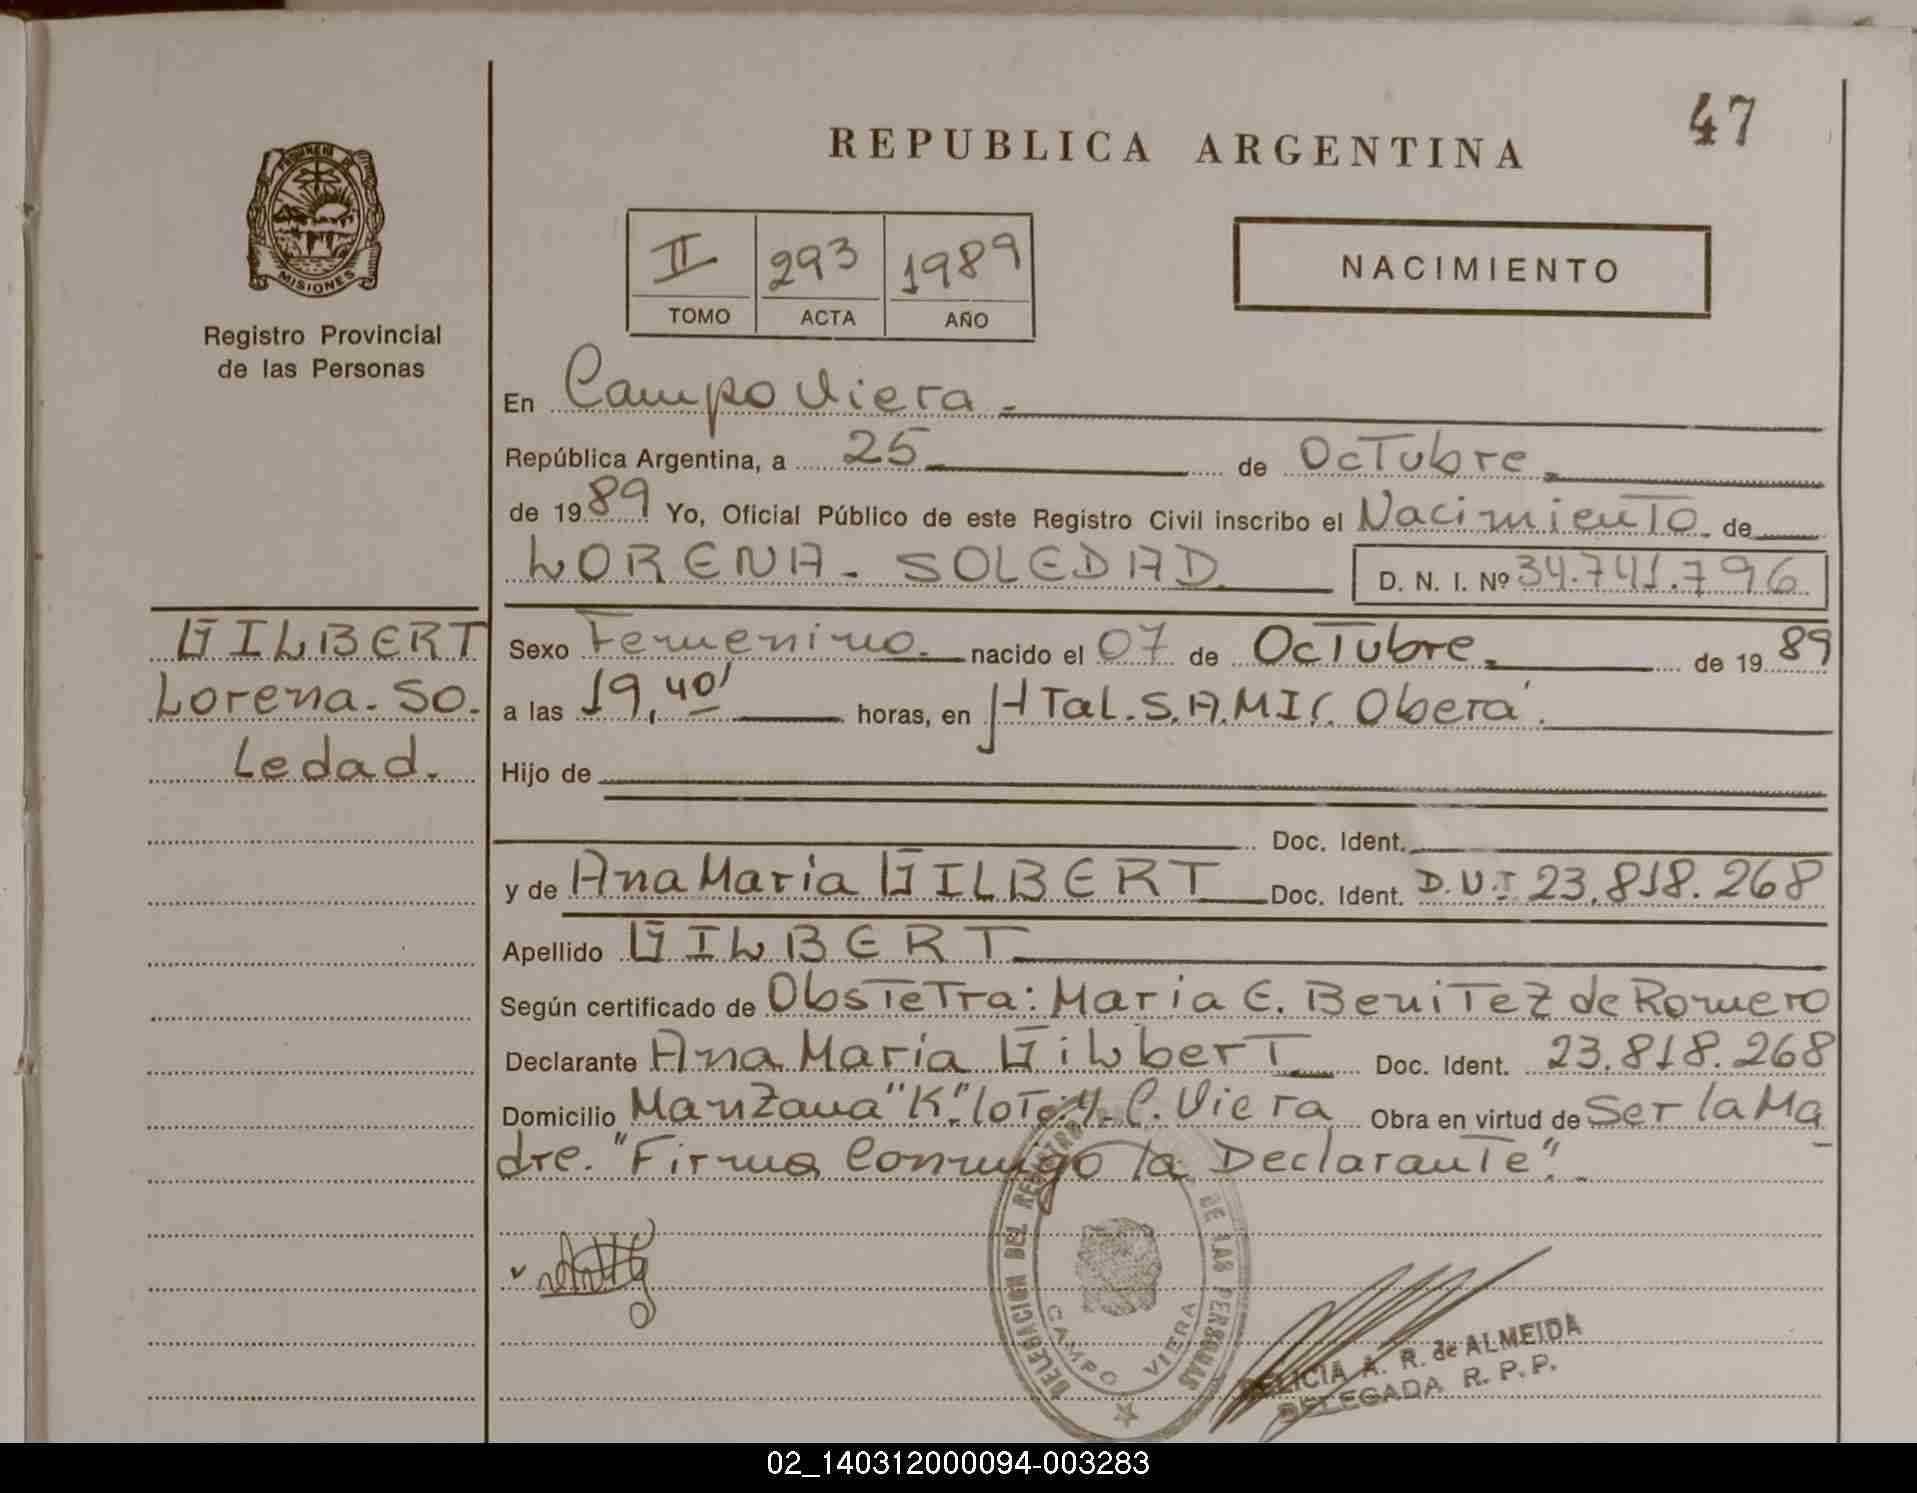 47
REPUBLICA ARGENTINA
PROVINCIA DE
MISIONES
Registro Provincial
de las Personas
II 293 1989
TOMO ACTA AÑO
NACIMIENTO
En Campo Viera.
República Argentina, a 25 de Octubre
de 1989 Yo, Oficial Público de este Registro Civil inscribo el Nacimiento de
LORENA - SOLEDAD D. N. I. Nº 34.741.796
GILBERT
Lorena - So.
ledad.
Sexo Femenino. nacido el 07 de Octubre de 1989
a las 19,40' horas, en HTal. S.A.M.I.C. Oberá.
Hijo de
Doc. Ident.
y de Ana Maria GILBERT Doc. Ident. D.U.I 23.818.268
Apellido GILBERT
Según certificado de Obstetra: Maria E. Benitez de Romero
Declarante Ana Maria Gilbert Doc. Ident. 23.818.268
Domicilio Manzana "K" lote: 4 - C. Viera Obra en virtud de Ser la Ma
dre. "Firma Conmigo la Declarante".
DELEGACION DEL REGISTRO DE LAS PERSONAS
CAMPO VIERA
A. R. de ALMEIDA
DELEGADA R. P. P.
02_140312000094-003283